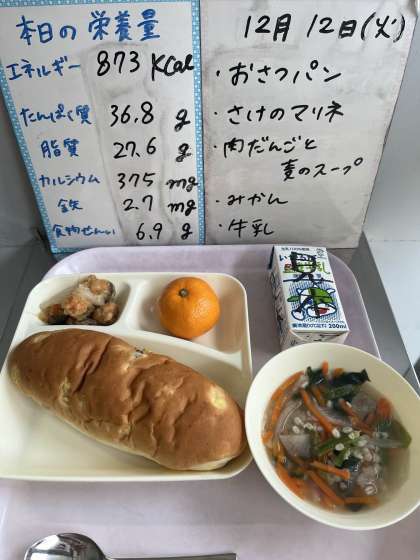 本日の栄養量
エネルギー 873 Kcal
たんぱく質 36.8 g
脂質 27.6 g
カルシウム 375 mg
鉄 2.7 mg
食物せんい 6.9 g
12月12日(火)
・おさつパン
・さけのマリネ
・肉だんごと
麦のスープ
・みかん
・牛乳
200ml